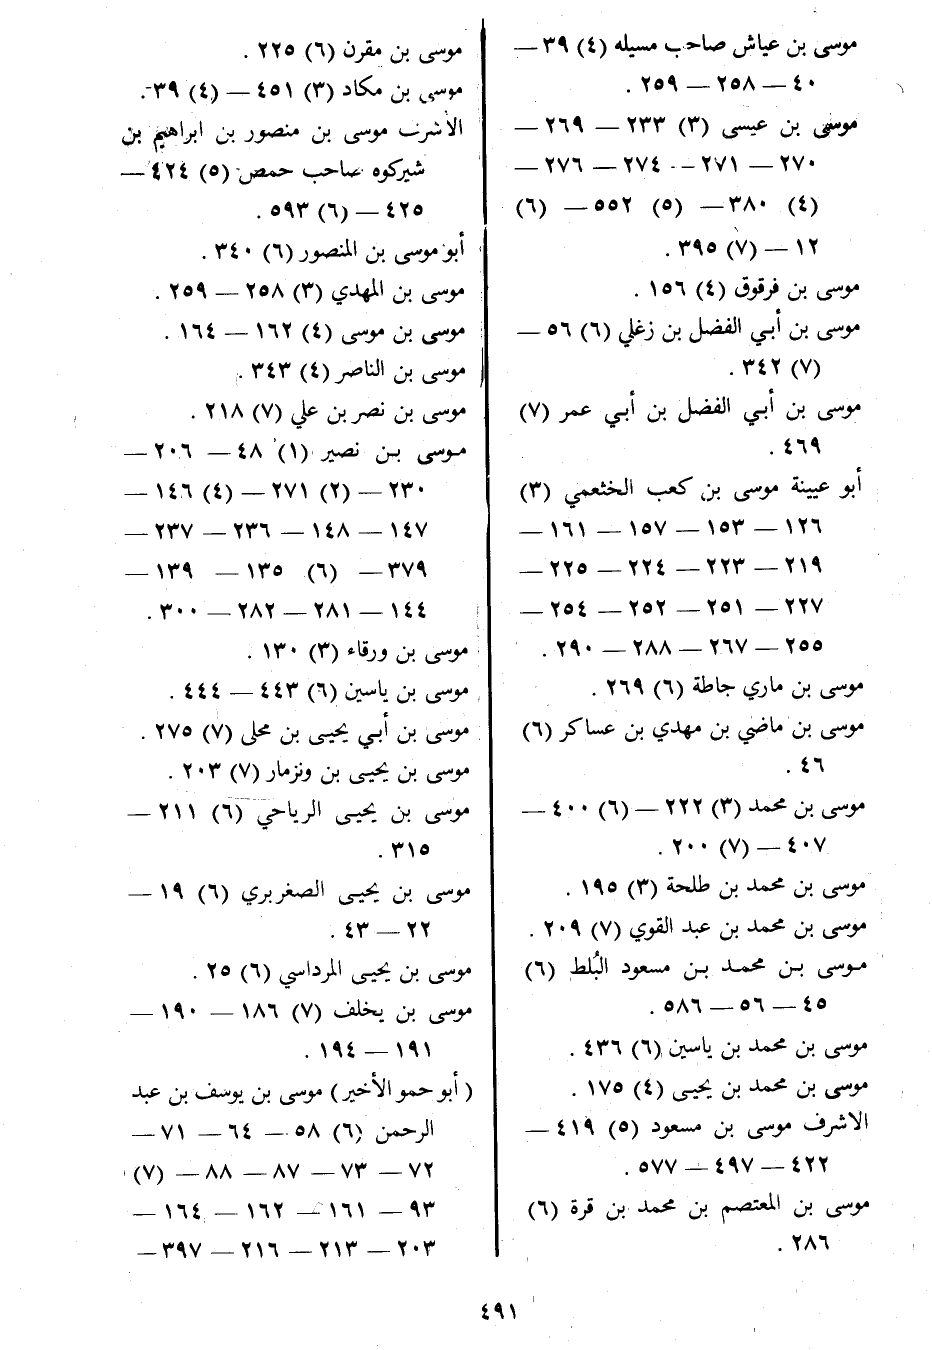 موسى بن عياش صاحب مسيله (٤) ٣٩ —
٤٠ — ٢٥٨ — ٢٥٩ .
موسى بن عيسى (٣) ٢٣٣ — ٢٦٩ —
٢٧٠ — ٢٧١ — ٢٧٤ — ٢٧٦ —
(٤) ٣٨٠ — (٥) ٥٥٢ — (٦)
١٢ — (٧) ٣٩٥ .
موسى بن فرقوق (٤) ١٥٦ .
موسى بن أبي الفضل بن زغلي (٦) ٥٦ —
(٧) ٣٤٢ .
موسى بن أبي الفضل بن أبي عمر (٧)
٤٦٩ .
أبو عيينة موسى بن كعب الخثعمي (٣)
١٢٦ — ١٥٣ — ١٥٧ — ١٦١ —
٢١٩ — ٢٢٣ — ٢٢٤ — ٢٢٥ —
٢٢٧ — ٢٥١ — ٢٥٢ — ٢٥٤ —
٢٥٥ — ٢٦٧ — ٢٨٨ — ٢٩٠ .
موسى بن ماري جاطة (٦) ٢٦٩ .
موسى بن ماضي بن مهدي بن عساكر (٦)
٤٦ .
موسى بن محمد (٣) ٢٢٢ — (٦) ٤٠٠ —
٤٠٧ — (٧) ٢٠٠ .
موسى بن محمد بن طلحة (٣) ١٩٥ .
موسى بن محمد بن عبد القوي (٧) ٢٠٩ .
موسى بن محمد بن مسعود البُلط (٦)
٤٥ — ٥٦ — ٥٨٦ .
موسى بن محمد بن ياسين (٦) ٤٣٦ .
موسى بن محمد بن يحيى (٤) ١٧٥ .
الاشرف موسى بن مسعود (٥) ٤١٩ —
٤٢٢ — ٤٩٧ — ٥٧٧ .
موسى بن المعتصم بن محمد بن قرة (٦)
٢٨٦ .
موسى بن مقرن (٦) ٢٢٥ .
موسى بن مكاد (٣) ٤٥١ — (٤) ٣٩ .
الأشرف موسى بن منصور بن ابراهيم بن
شيركوه صاحب حمص (٥) ٤٢٤ —
٤٢٥ — (٦) ٥٩٣ .
أبو موسى بن المنصور (٦) ٣٤٠ .
موسى بن المهدي (٣) ٢٥٨ — ٢٥٩ .
موسى بن موسى (٤) ١٦٢ — ١٦٤ .
موسى بن الناصر (٤) ٣٤٣ .
موسى بن نصر بن علي (٧) ٢١٨ .
موسى بن نصير (١) ٤٨ — ٢٠٦ —
٢٣٠ — (٢) ٢٧١ — (٤) ١٤٦ —
١٤٧ — ١٤٨ — ٢٣٦ — ٢٣٧ —
٣٧٩ — (٦) ١٣٥ — ١٣٩ —
١٤٤ — ٢٨١ — ٢٨٢ — ٣٠٠ .
موسى بن ورقاء (٣) ١٣٠ .
موسى بن ياسين (٦) ٤٤٣ — ٤٤٤ .
موسى بن أبي يحيى بن محلى (٧) ٢٧٥ .
موسى بن يحيى بن ونزمار (٧) ٢٠٣ .
موسى بن يحيى الرياحي (٦) ٢١١ —
٣١٥ .
موسى بن يحيى الصغربري (٦) ١٩ —
٢٢ — ٤٣ .
موسى بن يحيى المرداسي (٦) ٢٥ .
موسى بن يخلف (٧) ١٨٦ — ١٩٠ —
١٩١ — ١٩٤ .
( أبو حمو الأخير ) موسى بن يوسف بن عبد
الرحمن (٦) ٥٨ — ٦٤ — ٧١ —
٧٢ — ٧٣ — ٨٧ — ٨٨ — (٧)
٩٣ — ١٦١ — ١٦٢ — ١٦٤ —
٢٠٣ — ٢١٣ — ٢١٦ — ٣٩٧ —
٤٩١